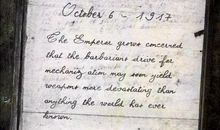 October 6 - 1917
The Emperor grows concerned
that the barbarians drive for
mechanization may soon yield
weapons more devastating than
anything the world has ever
known.